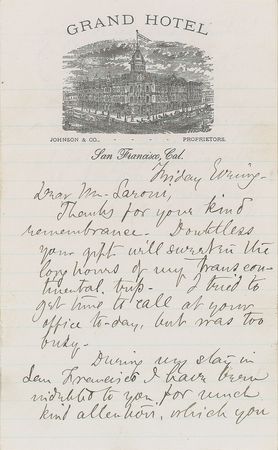 GRAND HOTEL
JOHNSON & CO., PROPRIETORS.
San Francisco, Cal.
Friday Evening
Dear Mr.
Thanks for your kind
remembrance. Doubtless
your gift will sweeten the
long hours of my transcon-
tinental trip. I tried to
get time to call at your
office to-day, but was too
busy.
During my stay in
San Francisco I have been
indebted to you for much
kind attention, which you